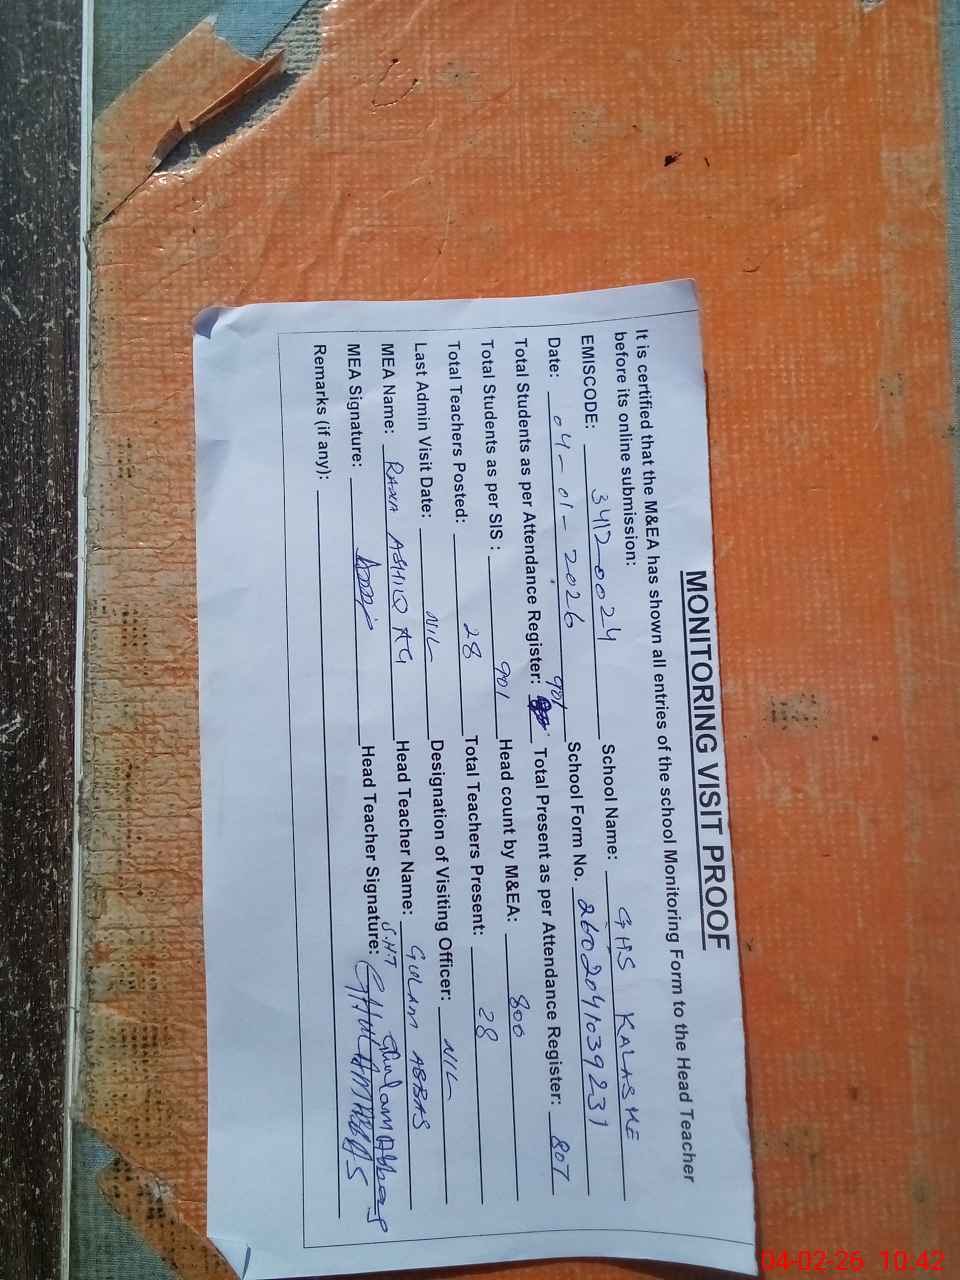 MONITORING VISIT PROOF
It is certified that the M&EA has shown all entries of the school Monitoring Form to the Head Teacher
before its online submission:
EMISCODE: 34120024 School Name: GHS KALASKE
Date: 04-01-2026 School Form No. 2602041039231
Total Students as per Attendance Register: 901 Total Present as per Attendance Register: 807
Total Students as per SIS : 901 Head count by M&EA: 800
Total Teachers Posted: 28 Total Teachers Present: 28
Last Admin Visit Date: NIL Designation of Visiting Officer: NIL
MEA Name: RANA ASHIQ Head Teacher Name: GULAM ABBAS
S.H.T Ghulam Abbas
MEA Signature: Head Teacher Signature: GHULAM ABBAS
Remarks (if any):
04-02-26 10:42